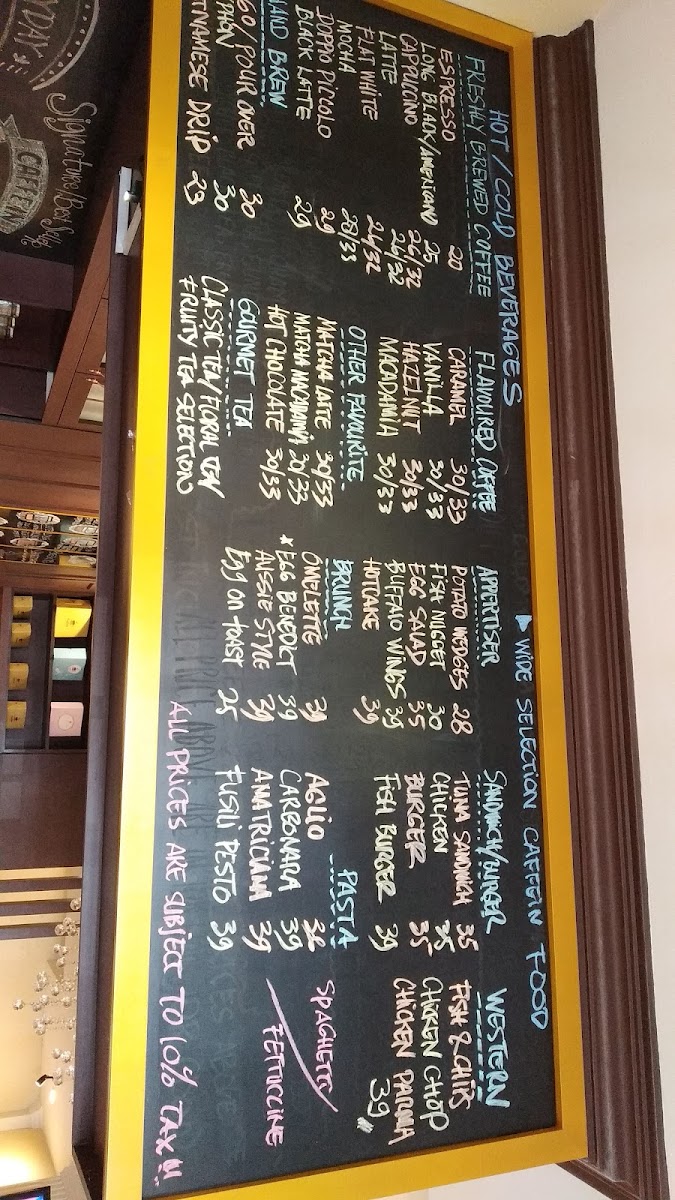 HOT / COLD BEVERAGES
FRESHLY BREWED COFFEE
ESPRESSO 20
LONG BLACK/AMERICANO 25
CAPPUCINO 26/32
LATTE 24/32
FLAT WHITE 24/32
MOCHA 28/33
DOPPIO PICCOLO 29
BLACK LATTE 29
HAND BREW
60/POUR OVER 30
PHEN 30
ETNAMESE DRIP 23
FLAVOURED COFFEE
CARAMEL 30/33
VANILLA 30/33
HAZELNUT 30/33
MACADAMIA 30/33
OTHER FAVOURITE
MATCHA LATTE 30/33
MATCHA MACADAMIA 30/33
HOT CHOCOLATE 30/33
GOURMET TEA
CLASSIC TEA/FLORAL TEA
FRUITY TEA SELECTIONS
WIDE SELECTION CAFFEIN FOOD
APPERTISER
POTATO WEDGES 28
FISH NUGGET 30
EGG SALAD 35
BUFFALO WINGS 39
HOTCAKE 39
BRUNCH
OMELETTE 39
* EGG BENEDICT 39
AUSSIE STYLE 39
Egg on toast 25
SANDWICH/BURGER
TUNA SANDWICH 35
CHICKEN 35
BURGER 35
FISH BURGER 39
PASTA
AGLIO 36
CARBONARA 39
AMATRICIANA 39
FUSILI PESTO 39
WESTERN
FISH & CHIPS
CHICKEN CHOP
CHICKEN PARMA
39
SPAGHETTY
FETTUCCINE
ALL PRICES ARE SUBJECT TO 10% TAX!!!
YDAY'S
Signature/Best Selle
CAFFEIN